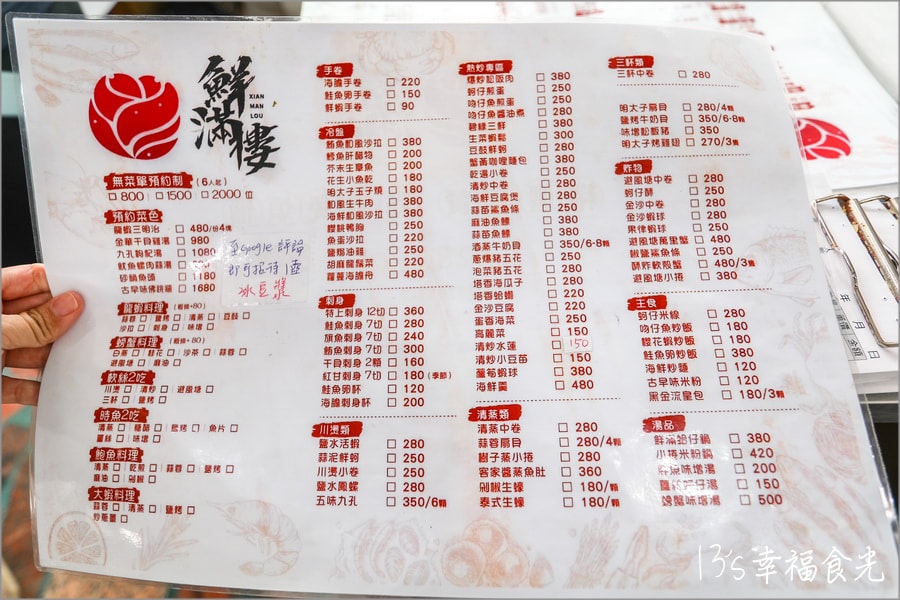 鮮滿樓
XIAN
MAN
LOU
無菜單預約制 (6人起)
□800 □1500 □2000 位
預約菜色
龍蝦三明治 □ 480/份4塊
金華干貝雞湯 □ 980
九孔枸杞湯 □ 1080
魷魚螺肉蒜湯 □
砂鍋魚頭 □ 1180
古早味佛跳牆 □ 1680
至Google評論
即可招待1壺
冰豆漿
龍蝦料理
蒜蓉□ 鹽烤□ 清蒸□ 豆豉□
沙拉□ 刺身□ 味增□
螃蟹料理
白蒸□ 桂花□ 沙茶□ 蒜蓉□
避風塘□ 麻油□
軟絲2吃
川燙□ 清炒□ 避風塘□
三杯□ 鹽烤□
時魚2吃
清蒸□ 糖醋□ 乾烤□ 魚片□
薑絲□ 味增□
鮑魚料理
清蒸□ 乾煎□ 蒜蓉□ 鹽烤□
麻油□ 剁椒□
大蝦料理
蒜蓉□ 清蒸□ 鹽烤□
炒脆薑□
手卷
海膽手卷 □ 220
鮭魚卵手卷 □ 150
鮮蝦手卷 □ 90
冷盤
鮪魚和風沙拉 □ 380
鱈魚肝醋物 □ 200
芥末生章魚 □ 200
花生小魚乾 □ 180
明太子玉子燒 □ 180
和風生牛肉 □ 380
海鮮和風沙拉 □ 380
櫻桃鴨胸 □ 250
魚蛋沙拉 □ 220
鹽焗油雞 □ 250
胡麻龍鬚菜 □ 220
蘿蔓海膽舟 □ 480
刺身
特上刺身 12切 □ 360
鮭魚刺身 7切 □ 280
旗魚刺身 7切 □ 240
鮪魚刺身 7切 □ 300
干貝刺身 2顆 □ 160
紅甘刺身 7切 □ 180 (季節)
鮭魚卵杯 □ 120
海膽刺身杯 □ 200
川燙類
鹽水活蝦 □ 280
蒜泥鮮蚵 □ 250
川燙小卷 □ 250
鹽水鳳螺 □ 280
五味九孔 □ 350/6顆
熱炒專區
爆炒松阪肉 □ 380
蚵仔煎蛋 □ 250
吻仔魚煎蛋 □ 250
吻仔魚醬油煮 □ 280
碧綠三鮮 □ 380
生菜蝦鬆 □ 280
豆豉鮮蚵 □ 280
蟹黃咖哩麵包 □ 380
乾邊小卷 □ 250
清炒中卷 □ 250
海鮮豆腐煲 □ 280
蒜苗鯊魚條 □ 250
麻油魚鰾 □ 280
蒜苗魚鰾 □ 280
清蒸牛奶貝 □ 350/6-8顆
蔥爆五花 □ 220
泡菜豬五花 □ 220
塔香海瓜子 □ 280
塔香蛤蜊 □ 220
金沙豆腐 □ 220
蛋香海菜 □ 250
高麗菜 □ 150
清炒水蓮 □ 150
清炒小豆苗 □ 150
蘆筍蝦球 □ 380
海鮮羹 □ 480
清蒸類
清蒸中卷 □ 280
蒜蓉扇貝 □ 280/4顆
樹子蒸小捲 □ 280
客家醬蒸魚肚 □ 360
剁椒生蠔 □ 180/顆
泰式生蠔 □ 180/顆
三杯類
三杯中卷 □ 280
明太子扇貝 □ 280/4顆
鹽烤牛奶貝 □ 350/6-8顆
味增松阪豬 □ 350
明太子烤雞翅 □ 270/3隻
炸物
避風塘中卷 □ 280
蚵仔酥 □ 250
金沙中卷 □ 280
金沙蝦球 □ 380
果律蝦球 □ 250
避風塘萬里蟹 □ 480
椒鹽鯊魚條 □ 250
酥炸軟殼蟹 □ 480/3隻
避風塘小捲 □ 380
主食
蚵仔米線 □ 280
吻仔魚炒飯 □ 180
櫻花蝦炒飯 □ 180
鮭魚卵炒飯 □ 380
海鮮炒麵 □ 120
古早味米粉 □ 120
黑金流皇包 □ 180/3顆
湯品
鮮滿蛤仔鍋 □ 380
小捲米粉鍋 □ 420
麻煩味增湯 □ 200
薑絲蚵仔湯 □ 150
螃蟹味增湯 □ 500
13's幸福食光